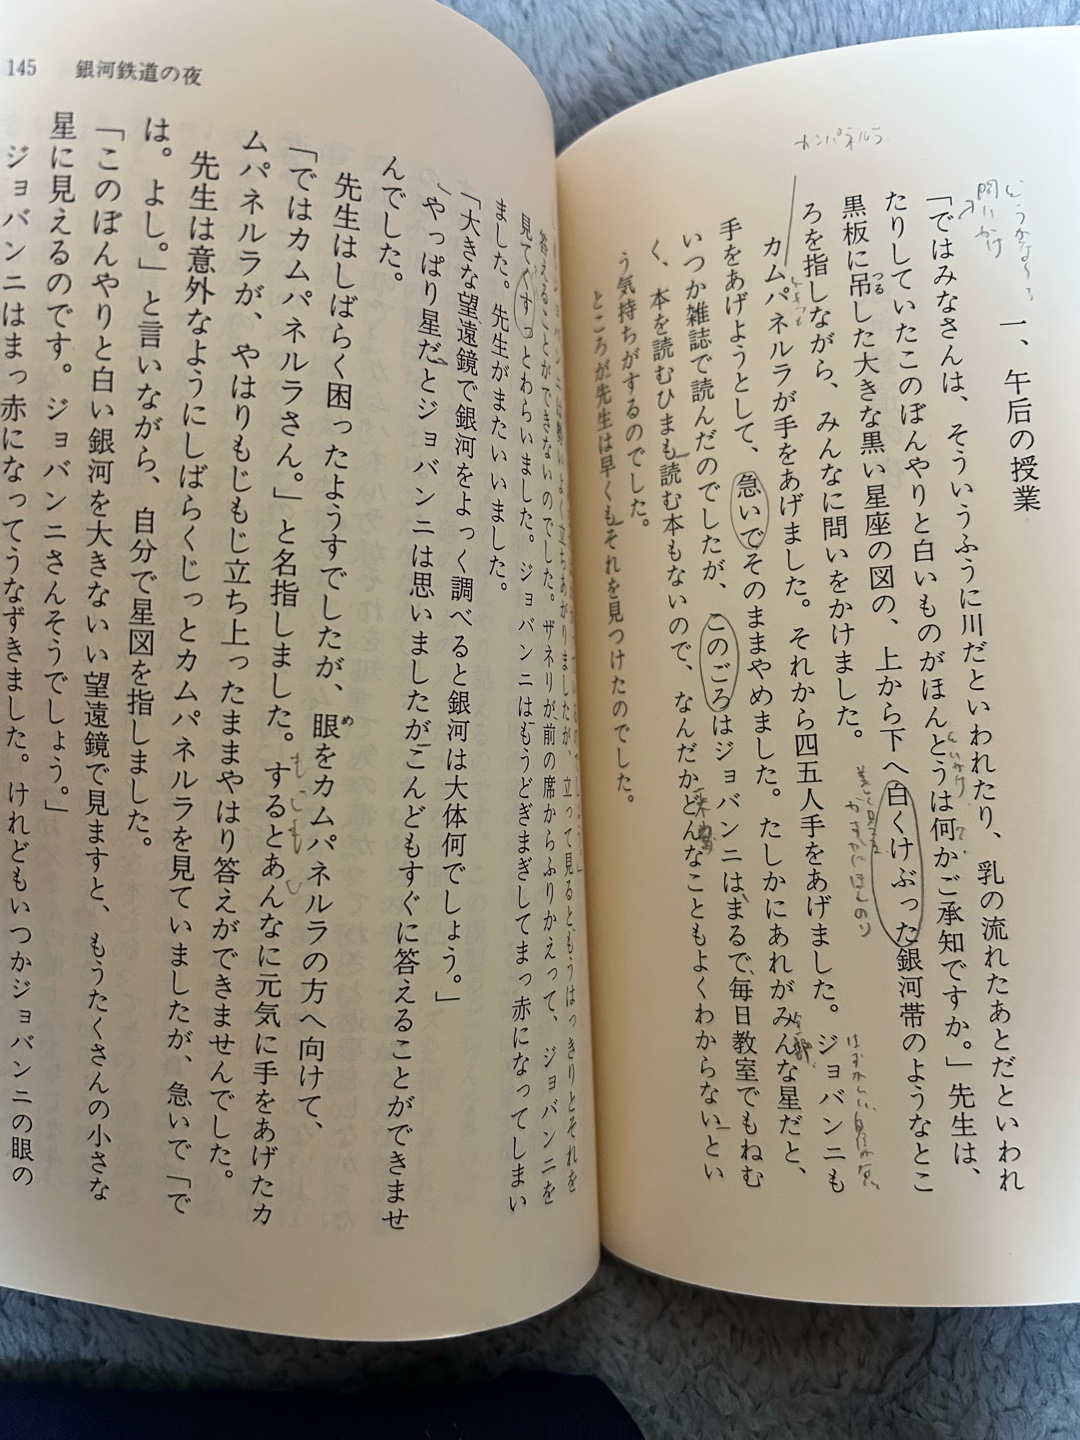 一、午後の授業
「ではみなさんは、そういうふうに川だといわれたり、乳の流れたあとだといわれ
たりしていたこのぼんやりと白いものがほんとうは何かご承知ですか。」先生は、
黒板に吊した大きな黒い星座の図の、上から下へ白くけぶった銀河帯のようなとこ
ろを指しながら、みんなに問いをかけました。
カムパネルラが手をあげました。それから四五人手をあげました。ジョバンニも
手をあげようとして、急いでそのままやめました。たしかにあれがみんな星だと、
いつか雑誌で読んだのでしたが、このごろはジョバンニはまるで毎日教室でもねむ
く、本を読むひまも読む本もないので、なんだかどんなこともよくわからないとい
う気持ちがするのでした。
ところが先生は早くもそれを見つけたのでした。
つる
カンパネルラ
問いかけ
全部
145 銀河鉄道の夜
答えることができないのでした。ザネリが前の席からふりかえって、ジョバンニを
見てくすっとわらいました。ジョバンニはもうどぎまぎしてまっ赤になってしまい
ました。先生がまたいいました。
「大きな望遠鏡で銀河をよっく調べると銀河は大体何でしょう。」
やっぱり星だとジョバンニは思いましたがこんどもすぐに答えることができませ
んでした。
先生はしばらく困ったようすでしたが、眼をカムパネルラの方へ向けて、
「ではカムパネルラさん。」と名指しました。するとあんなに元気に手をあげたカ
ムパネルラが、やはりもじもじ立ち上ったままやはり答えができませんでした。
先生は意外なようにしばらくじっとカムパネルラを見ていましたが、急いで「で
は。よし。」と言いながら、自分で星図を指しました。
「このぼんやりと白い銀河を大きないい望遠鏡で見ますと、もうたくさんの小さな
星に見えるのです。ジョバンニさんそうでしょう。」
ジョバンニはまっ赤になってうなずきました。けれどもいつかジョバンニの眼の
め
もじもじ